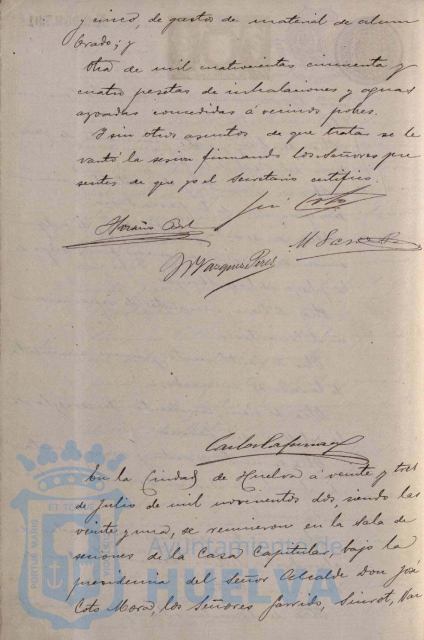 y cinco, de gastos de material de alum
brado; y
Otra de mil cuatrocientas cincuenta y
cuatro pesetas de inhalaciones y aguas
azoadas concedidas á vecinos pobres.
Y sin otros asuntos de que tratar se le
vantó la sesion firmando los Señores pre
sentes de que yo el Secretario certifico.
José Coto
Horacio Bel
M. Vazquez Perez
Carlos
En la Ciudad de Huelva á veinte y tres
de Julio de mil novecientos dos siendo las
veinte y una, se reunieron en la Sala de
sesiones de la Casa Capitular, bajo la
presidencia del Señor Alcalde Don José
Coto Mora, los Señores Garrido, Sinrot, Vaz
PORTUS MARIS
Ayuntamiento de
HUELVA